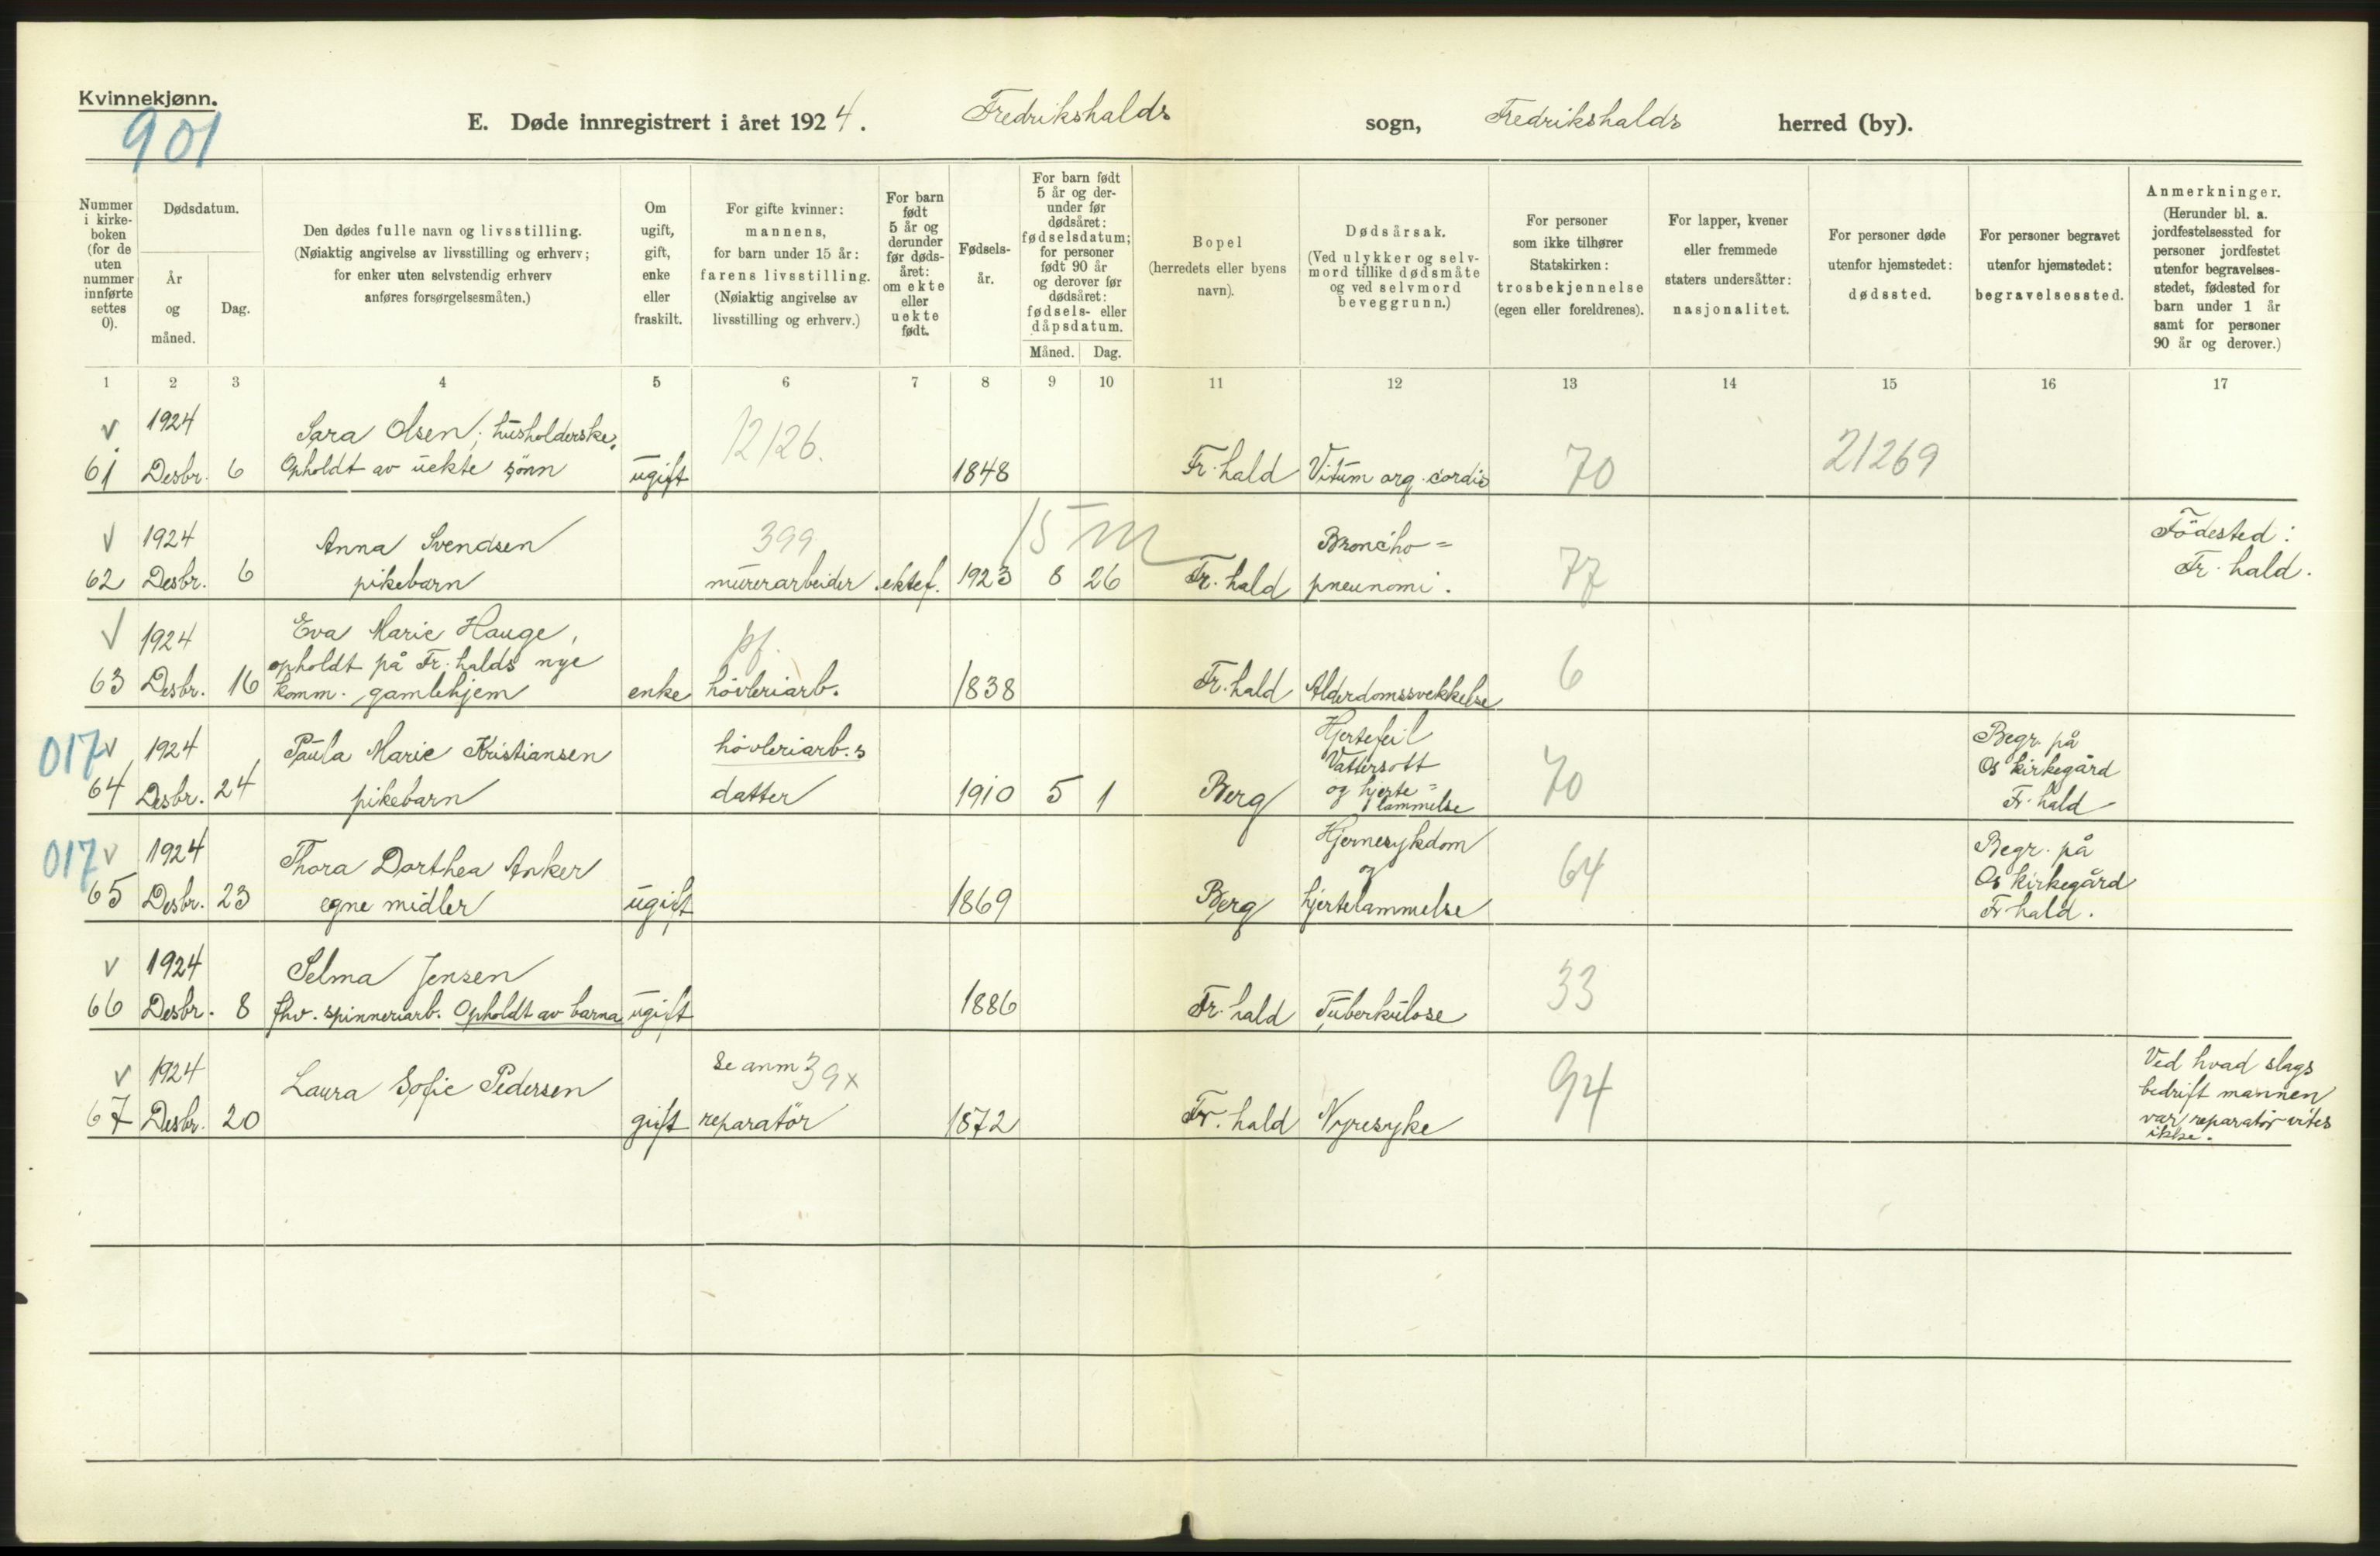 Kvinnekjønn.
901
E. Døde innregistrert i året 1924. Fredrikshalds sogn, Fredrikshalds herred (by).
Nummer
i kirke-
boken
(for de
uten
nummer
innførte
settes
0).
Dødsdatum.
År
og
måned.
Dag.
Den dødes fulle navn og livsstilling.
(Nøiaktig angivelse av livsstilling og erhverv;
for enker uten selvstendig erhverv
anføres forsørgelsesmåten.)
Om
ugift,
gift,
enke
eller
fraskilt.
For gifte kvinner:
mannens,
for barn under 15 år:
farens livsstilling.
(Nøiaktig angivelse av
livsstilling og erhverv.)
For barn
født
5 år og
derunder
før døds-
året:
om ekte
eller
uekte
født.
Fødsels-
år.
For barn født
5 år og der-
under før
dødsåret:
fødselsdatum;
for personer
født 90 år
og derover før
dødsåret:
fødsels- eller
dåpsdatum.
Måned. Dag.
Bopel
(herredets eller byens
navn).
Dødsårsak.
(Ved ulykker og selv-
mord tillike dødsmåte
og ved selvmord
beveggrunn.)
For personer
som ikke tilhører
Statskirken:
trosbekjennelse
(egen eller foreldrenes).
For lapper, kvener
eller fremmede
staters undersåtter:
nasjonalitet.
For personer døde
utenfor hjemstedet:
dødssted.
For personer begravet
utenfor hjemstedet:
begravelsessted.
Anmerkninger.
(Herunder bl. a.
jordfestelsessted for
personer jordfestet
utenfor begravelses-
stedet, fødested for
barn under 1 år
samt for personer
90 år og derover.)
1 2 3 4 5 6 7 8 9 10 11 12 13 14 15 16 17
v 1924 Sara Olsen, husholderske. 12126. 21269
61 Desbr. 6 Opholdt av uekte sønn ugift 1848 Fr.hald Vitum org. cordis 70
v 1924 Anna Svendsen 399 15 m Broncho= Födested:
62 Desbr. 6 pikebarn murerarbeider ektef. 1923 8 26 Fr.hald pneunomi. 77 Fr.hald.
v 1924 Eva Marie Hauge, pf.
opholdt på Fr.halds nye
63 Desbr. 16 komm. gamlehjem enke høvleriarb. 1838 Fr.hald Alderdomssvekkelse 6
017 v 1924 Paula Marie Kristiansen høvleriarb.s Hjertefeil Begr. på
Vattersott Os kirkegård
64 Desbr. 24 pikebarn datter 1910 5 1 Berg og hjerte= 70 Fr.hald
lammelse
017 v 1924 Thora Dorthea Anker Hjernesykdom Begr. på
og 64 Os kirkegård
65 Desbr. 23 egne midler ugift 1869 Berg hjertelammelse Fr.hald.
v 1924 Selma Jensen 33
66 Desbr. 8 fhv. spinneriarb. Opholdt av barna ugift 1886 Fr.hald Tuberkulose
v 1924 Laura Sofie Pedersen Se anm 39x 94 Ved hvad slags
bedrift mannen
67 Desbr. 20 gift reparatör 1872 Fr.hald Nyresyke var reparatör vites
ikke.